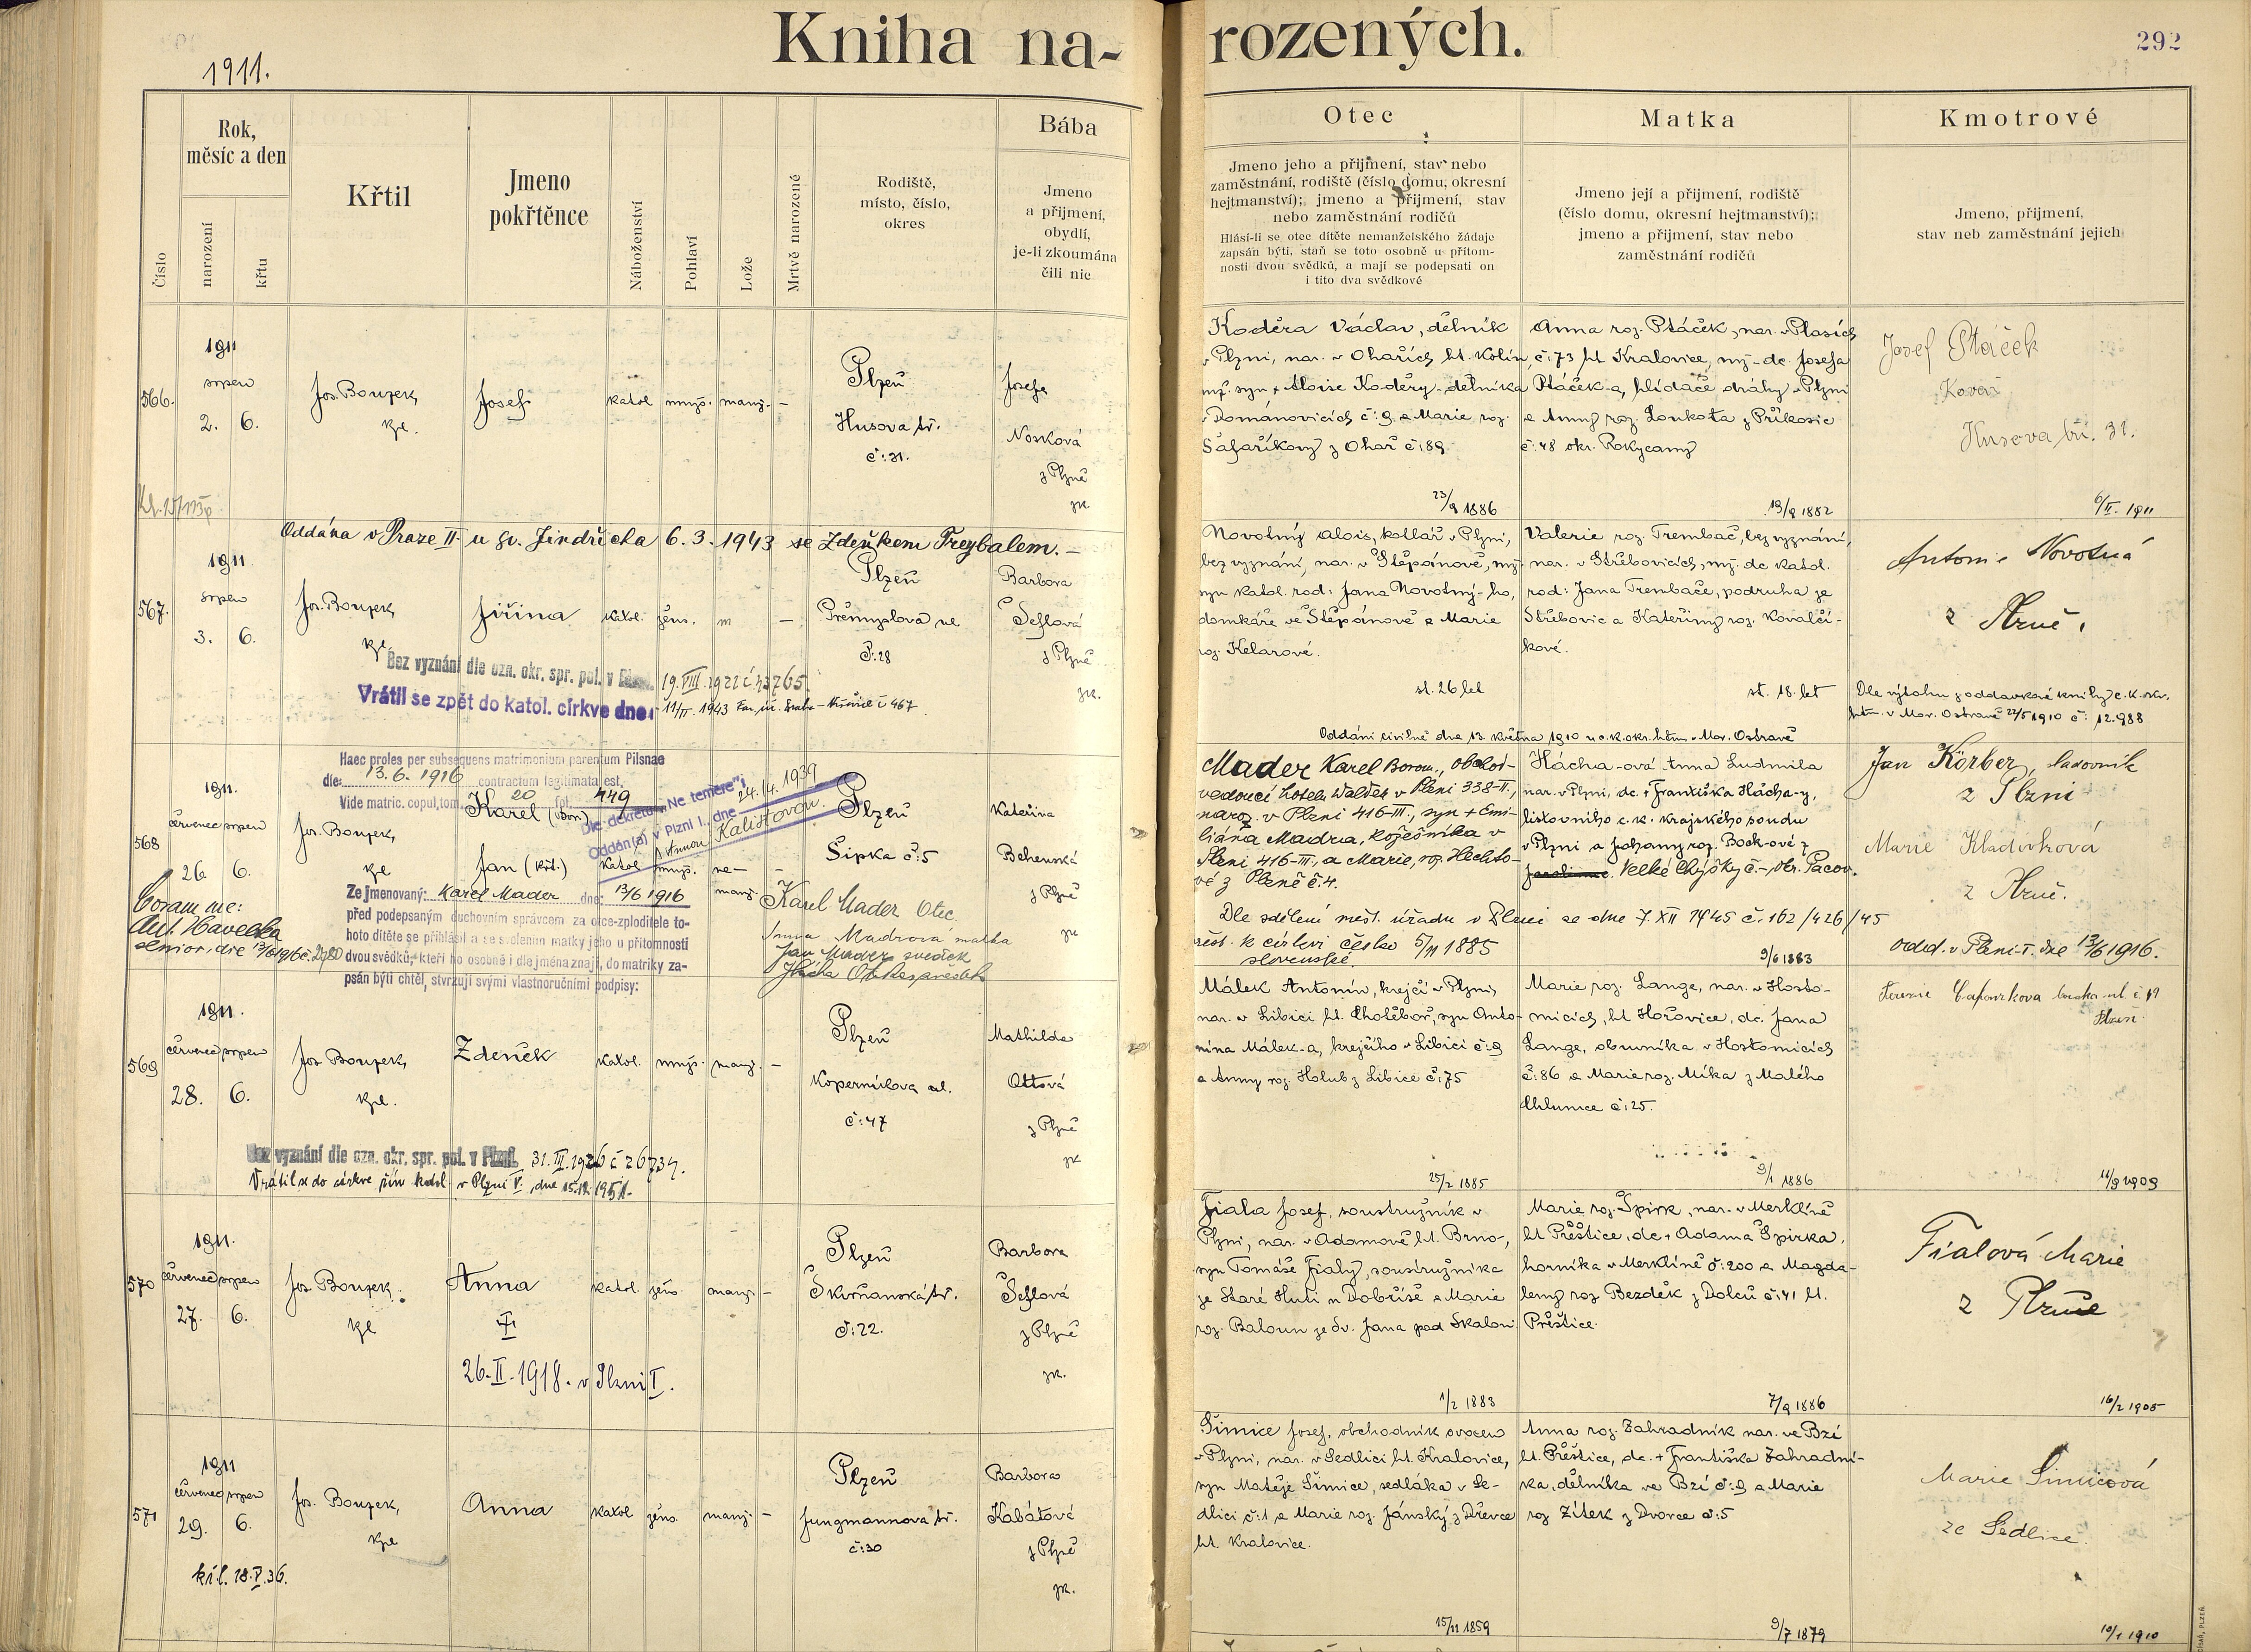 Kniha na-
rozených.
292
1911.
Číslo
Rok,
měsíc a den
narození
křtu
Křtil
Jmeno
pokřtěnce
Náboženství
Pohlaví
Lože
Mrtvě narozené
Rodiště,
místo, číslo,
okres
Bába
Jmeno
a přijmení,
obydlí,
je-li zkoumána
čili nic
Otec
Jmeno jeho a přijmení, stav nebo
zaměstnání, rodiště (číslo domu, okresní
hejtmanství); jmeno a přijmení, stav
nebo zaměstnání rodičů
Hlásí-li se otec dítěte nemanželského žádaje
zapsán býti, staň se toto osobně u přítom-
nosti dvou svědků, a mají se podepsati on
i tito dva svědkové
Matka
Jmeno její a přijmení, rodiště
(číslo domu, okresní hejtmanství);
jmeno a přijmení, stav nebo
zaměstnání rodičů
Kmotrové
Jmeno, přijmení,
stav neb zaměstnání jejich
566.
1911
srpen
2. 6.
Jos. Bouzek,
kpl.
Josef
katol. mužs. manž. –
Plzeň
Husova tř.
č: 31.
Josefa
Nosková
z Plzně
zk.
Koděra Václav, dělník
v Plzni, nar. v Ohařích ht. Kolín,
mž. syn + Aloise Koděry - dělníka
v Domanovicích č: 9 a Marie roz.
Šafaříkový z Ohař č: 89
23/9 1886
Anna roz. Ptáček, nar. v Plasích
č: 73 ht Kralovice, mž. dc. Josefa
Ptáček-a, hlídače dráhy v Plzni
a Anny roz. Loukota z Příkosic
č: 48 okr. Rokycany
19/9 1882
Josef Ptáček
Kovář
Husova tří. 31.
6/II. 1911
Oddána v Praze II. u sv. Jindřicha 6. 3. 1943 se Zdeňkem Freybalem. –
567.
1911
srpen
3. 6.
Jos. Bouzek,
kpl.
Jiřina
katol. žens. m –
Plzeň
Přemyslova ul.
č: 28
Barbora
Šeflová
z Plzně
zk.
Bez vyznání dle ozn. okr. spr. pol. v 19. VIII. 1922 č 43765.
Vrátil se zpět do katol. církve dne: 11/II. 1943 č 467
Novotný Alois, kotlář v Plzni,
bez vyznání, nar. v Štěpánově, mž.
syn katol. rod: Jana Novotný-ho,
domkáře ve Štěpánově a Marie
roz. Kelarové.
st. 26 let
Valerie roz. Trembač, bez vyznání,
nar. v Střebovicích, mž. dc katol.
rod: Jana Trembače, podruha ze
Střebovic a Kateřiny roz. Kovalčí-
kové.
st. 18. let
Antonie Novotná
z Plzně.
Dle výtahu z oddavkové knihy c. k. okr.
hetm. v Mor. Ostravě 22/5 1910 č: 12.988
Oddáni civilně dne 13. května 1910 u c. k. okr. hetm. v Mor. Ostravě
568
1911.
červenec srpen
26. 6.
Jos. Bouzek,
kpl
Haec proles per subsequens matrimonium parentum Pilsnae
die: 13. 6. 1916 contractum legitimata est.
Vide matric. copul. tom. 20 fol. 449
Karel (Bor.)
Jan (křt.)
Dle dekretu „Ne temere“
Oddán(a) v Plzni I., dne 24. /4. 1939
s Annou Kalistovou.
katol mužs. ne-
manž.
Plzeň
Šipka č: 5
Kateřina
Behenská
z Plzně
zk
Coram me:
Ant. Havelka
senior, die 13/6 1916
Ze jmenovaný: Karel Mader dne: 13/6 1916
před podepsaným duchovním správcem za otce-zploditele to-
hoto dítěte se přihlásil a se svolením matky jeho u přítomnosti
dvou svědků, kteří ho osobně i dle jména znají, do matriky za-
psán býti chtěl, stvrzují svými vlastnoručními podpisy:
Karel Mader Otec
Anna Madrová matka
Jan Mader svědek
Hácha
Mader Karel Borom., obchod-
vedoucí hotelu Waldek v Plzni 338-II.,
naroz. v Plzni 416-III., syn + Emi-
liána Madra, kožešníka v
Plzni 416-III., a Marie, roz. Hechto-
vé z Plzně č. 4.
Hácha-ová Anna Ludmila
nar. v Plzni, dc. + Františka Hácha-y,
listovního c. k. krajského soudu
v Plzni a Johany roz. Bock-ové z
Velké Chyšky č. – okr. Pacov.
Dle sdělení měst. úřadu v Plzni ze dne 7. XII 1945 č. 162/426/45
5/11 1885
slovenské.
9/6 1883
Jan Körber, ladovník
z Plzni
Marie Kladivková
z Plzně.
odd. v Plzni-I. dne 13/6 1916.
569
1911.
červenec srpen
28. 6.
Jos. Bouzek,
kpl.
Zdeněk
katol. mužs. manž. –
Plzeň
Koperníkova ul.
č: 47
Mathilda
Ottová
z Plzně
zk
Bez vyznání dle ozn. okr. spr. pol. v Plzni. 31. III. 1926 č 26734.
Vrátil se do církve řím katol. v Plzni V. dne 15. 12. 1951.
Málek Antonín, krejčí v Plzni,
nar. v Libici ht. Chotěboř, syn Anto-
nína Málek-a, krejčího v Libici č: 9
a Anny roz. Holub z Libice č: 75
25/2 1885
Marie roz. Lange, nar. v Hosto-
micích, ht Hořovice, dc. Jana
Lange, obuvníka v Hostomicích
č: 86 a Marie roz. Míka z Malého
Chlumce č: 25.
9/1 1886
Plzeň
11/9 1909
570
1911.
červenec srpen
27. 6.
Jos. Bouzek.
kpl
Anna
26. II. 1918. v Plzni I.
katol žens manž. –
Plzeň
Škvrňanská tř.
č: 22.
Barbora
Šeflová
z Plzně
zk.
Fiala Josef, soustružník v
Plzni, nar. v Adamově ht. Brno-,
syn Tomáše Fialy, soustružníka
ze Staré Huti u Dobříše a Marie
roz. Baloun ze Sv. Jana pod Skalou.
1/2 1883
Marie roz. Špirk, nar. v Merklíně
ht Přeštice, dc + Adama Špirka,
horníka v Merklíně č: 200 a Magda-
leny roz. Bezděk z Dolců č: 41 ht.
Přeštice.
7/9 1886
Fialová Marie
z Plzně
16/2 1905
571
1911
červenec srpen
29. 6.
Jos. Bouzek,
kpl
Anna
katol žens. manž. –
Plzeň
Jungmannova tř.
č: 30
Barbora
Kabátová
z Plzně
zk.
18. V. 36.
Šimice Josef, obchodník ovocem
v Plzni, nar. v Sedlici ht. Kralovice,
syn Matěje Šimice, sedláka v Se-
dlici č: 1 a Marie roz. Jánský z Dřevce
ht. Kralovice.
15/11 1859
Anna roz. Zahradník nar. ve Brzí
ht. Přeštice, dc. + Františka Zahradní-
ka, dělníka ve Brzí č: 9 a Marie
roz Zítek z Dvorce č: 5
9/7 1879
Marie Šimicová
ze Sedlice.
10/1 1910